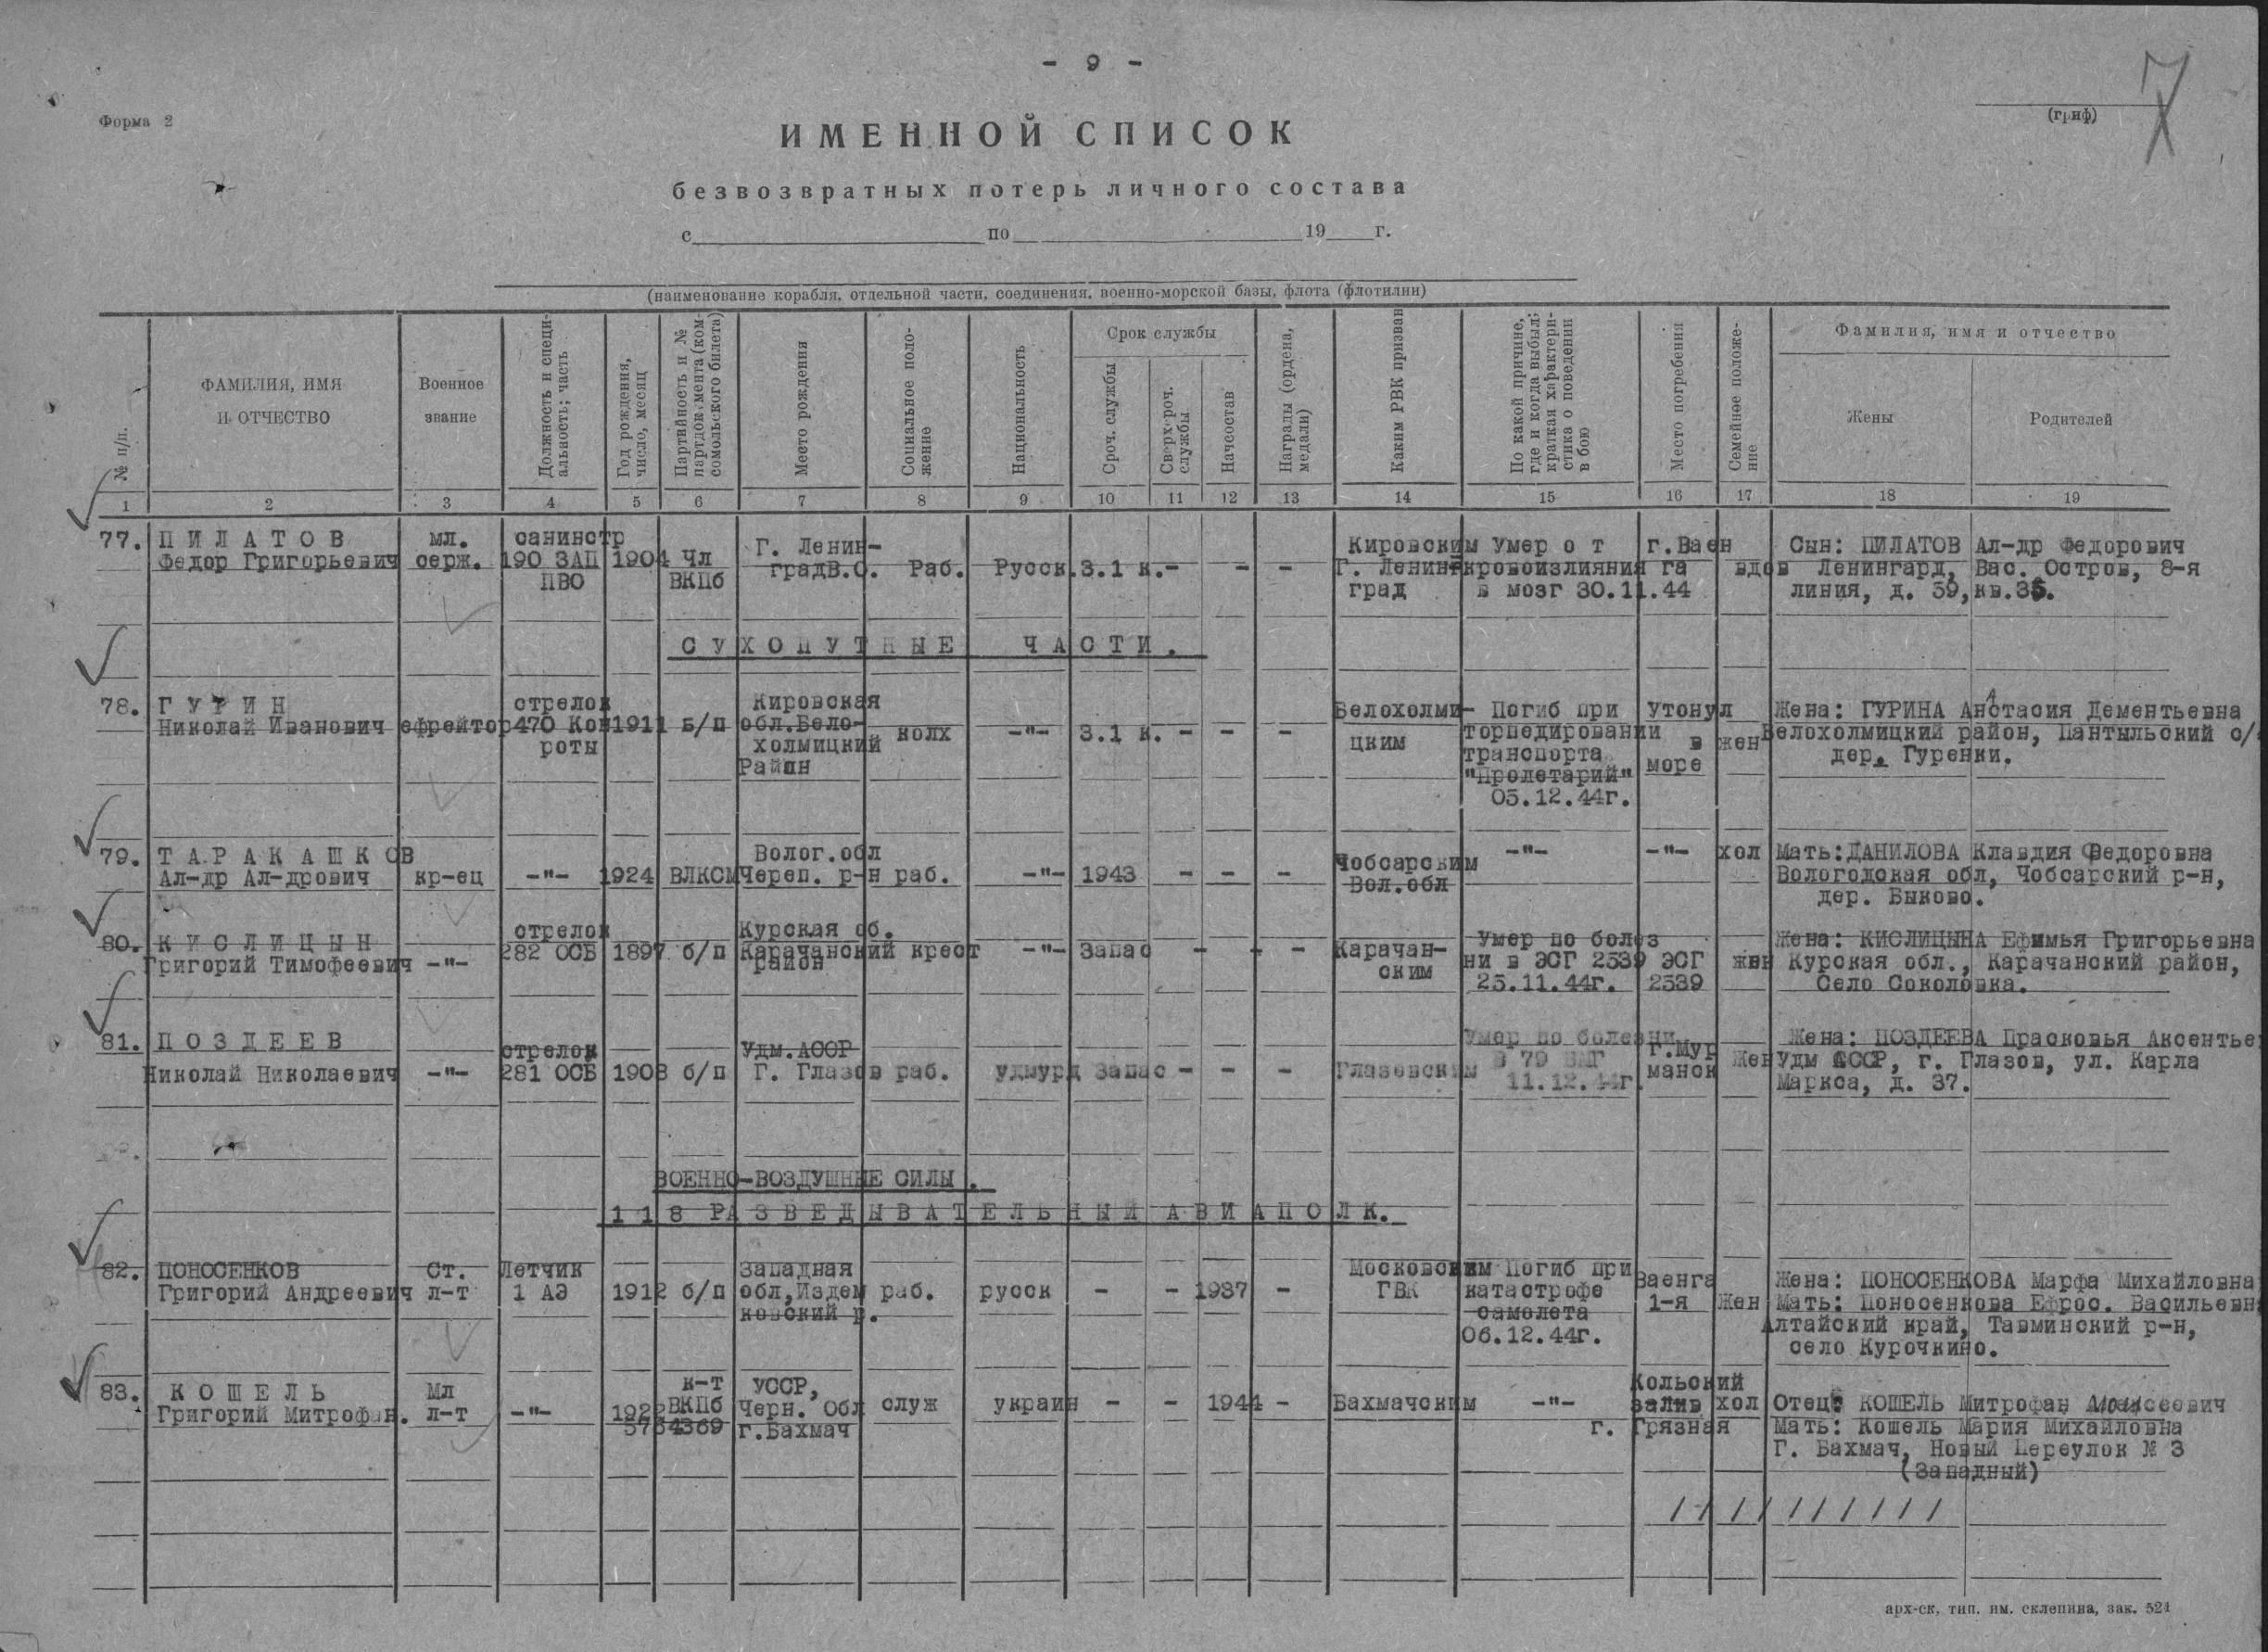 - 9 -
7
Форма 2
(гриф)
ИМЕННОЙ СПИСОК
безвозвратных потерь личного состава
с по 19 г.
(наименование корабля, отдельной части, соединения, военно-морской базы, флота (флотилии)
№ п/п.
ФАМИЛИЯ, ИМЯ
И ОТЧЕСТВО
Военное
звание
Должность и специ-
альность; часть
Год рождения,
число, месяц
Партийность и №
партдокумента (ком-
сомольского билета)
Место рождения
Социальное поло-
жение
Национальность
Срок службы
Сроч. службы
Сверхсроч.
службы
Начсостав
Награды (ордена,
медали)
Каким РВК призван
По какой причине,
где и когда выбыл;
краткая характери-
стика о поведении
в бою
Место погребения
Семейное положе-
ние
Фамилия, имя и отчество
Жены
Родителей
1 2 3 4 5 6 7 8 9 10 11 12 13 14 15 16 17 18 19
77. ПИЛАТОВ мл. санинстр Г. Ленин- Кировским Умер о т г.Ваен Сын: ПИЛАТОВ Ал-др Федорович
Федор Григорьевич серж. 190 ЗАП 1904 Чл градВ.О. Раб. Русск. З.1 к.- - - Г. Ленин- кровоизлияния га вдов Ленингард, Вас. Остров, 8-я
ПВО ВКПб град в мозг 30.11.44 линия, д. 59, кв.
СУХОПУТНЫЕ ЧАСТИ.
78. ГУРИН стрелок Кировская Белохолми- Погиб при Утонул Жена: ГУРИНА Анстасия Дементьевна
Николай Иванович ефрейтор 470 Кон 1911 б/п обл.Бело- колх -"- З.1 к. - - - цким торпедировании в жен Белохолмицкий район, Пантыльский с/
роты холмицкий транспорта море дер. Гуренки.
Район "Пролетарий"
05.12.44г.
79. ТАРАКАШКОВ Волог.обл Чобсарским -"- -"- хол Мать:ДАНИЛОВА Клавдия Федоровна
Ал-др Ал-дрович кр-ец -"- 1924 ВЛКСМ Череп. р-н раб. -"- 1943 - - - Вол.обл Вологодская обл, Чобсарский р-н,
дер. Быково.
80. КИСЛИЦЫН стрелок Курская об. Карачан- Умер по болез Жена: КИСЛИЦЫНА Ефимья Григорьевна
Григорий Тимофеевич -"- 282 ОСБ 1897 б/п Карачанский крест -"- Запас - - - ским ни в ЭСГ 2539 ЭСГ жен Курская обл., Карачанский район,
район 25.11.44г. 2539 Село Соколовка.
81. ПОЗДЕЕВ стрелок Удм.АССР Умер по болезни г.Мур Жена: ПОЗДЕЕВА Прасковья Аксентье
Николай Николаевич -"- 281 ОСБ 1908 б/п Г. Глазов раб. удмурд Запас - - - Глазевским В 79 манск Жен Удм АССР, г. Глазов, ул. Карла
11.12.44г. Маркса, д. 37.
ВОЕННО-ВОЗДУШНЫЕ СИЛЫ.
118 РАЗВЕДЫВАТЕЛЬНЫЙ АВИАПОЛК.
82. ПОНОСЕНКОВ Ст. Летчик Западная Московским Погиб при Ваенга Жена: ПОНОСЕНКОВА Марфа Михайловна
Григорий Андреевич л-т 1 АЭ 1912 б/п обл,Издем раб. русск - - 1937 - ГВК катастрофе 1-я Жен Мать: Поносенкова Ефрос. Васильевн
ковский р. самолета Алтайский край, Тавминский р-н,
06.12.44г. село Курочкино.
83. КОШЕЛЬ Мл к-т УССР, Кольский
Григорий Митрофан. л-т -"- 1922 ВКПб Черн. Обл служ украин - - 1944 - Бахмачским -"- залив хол Отец: КОШЕЛЬ Митрофан Моисеевич
5764369 г.Бахмач г. Грязная Мать: Кошель Мария Михайловна
Г. Бахмач, Новый Переулок № 3
(Западный)
/ / / / / / / / / / /
арх-ск. тип. им. склепина, зак. 521